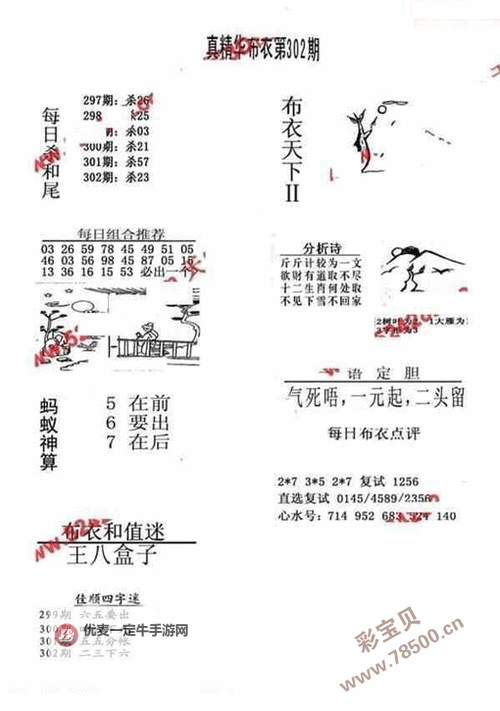 真精华布衣第302期
每日杀和尾
297期：杀26
298 杀25
期：杀03
300期：杀21
301期：杀57
302期：杀23
布衣天下II
每日组合推荐
03 26 59 78 45 49 51 05
46 03 56 98 45 87 05 16
13 36 16 15 53 必出一个
分析诗
斤斤计较为一文
欲财有道取不尽
十二生肖何处取
不见下雪不回家
1大雁为
蚂蚁神算
5 在前
6 要出
7 在后
语定胆
气死唔，一元起，二头留
每日布衣点评
2*7 3*5 2*7 复试 1256
直选复试 0145/4589/2356
心水号：714 952 683 924 140
布衣和值迷
王八盒子
佳顺四字迷
299期 六五要出
300
301 五五分帐
302期 二三下六
优麦一定牛手游网
彩宝贝
www.78500.cn